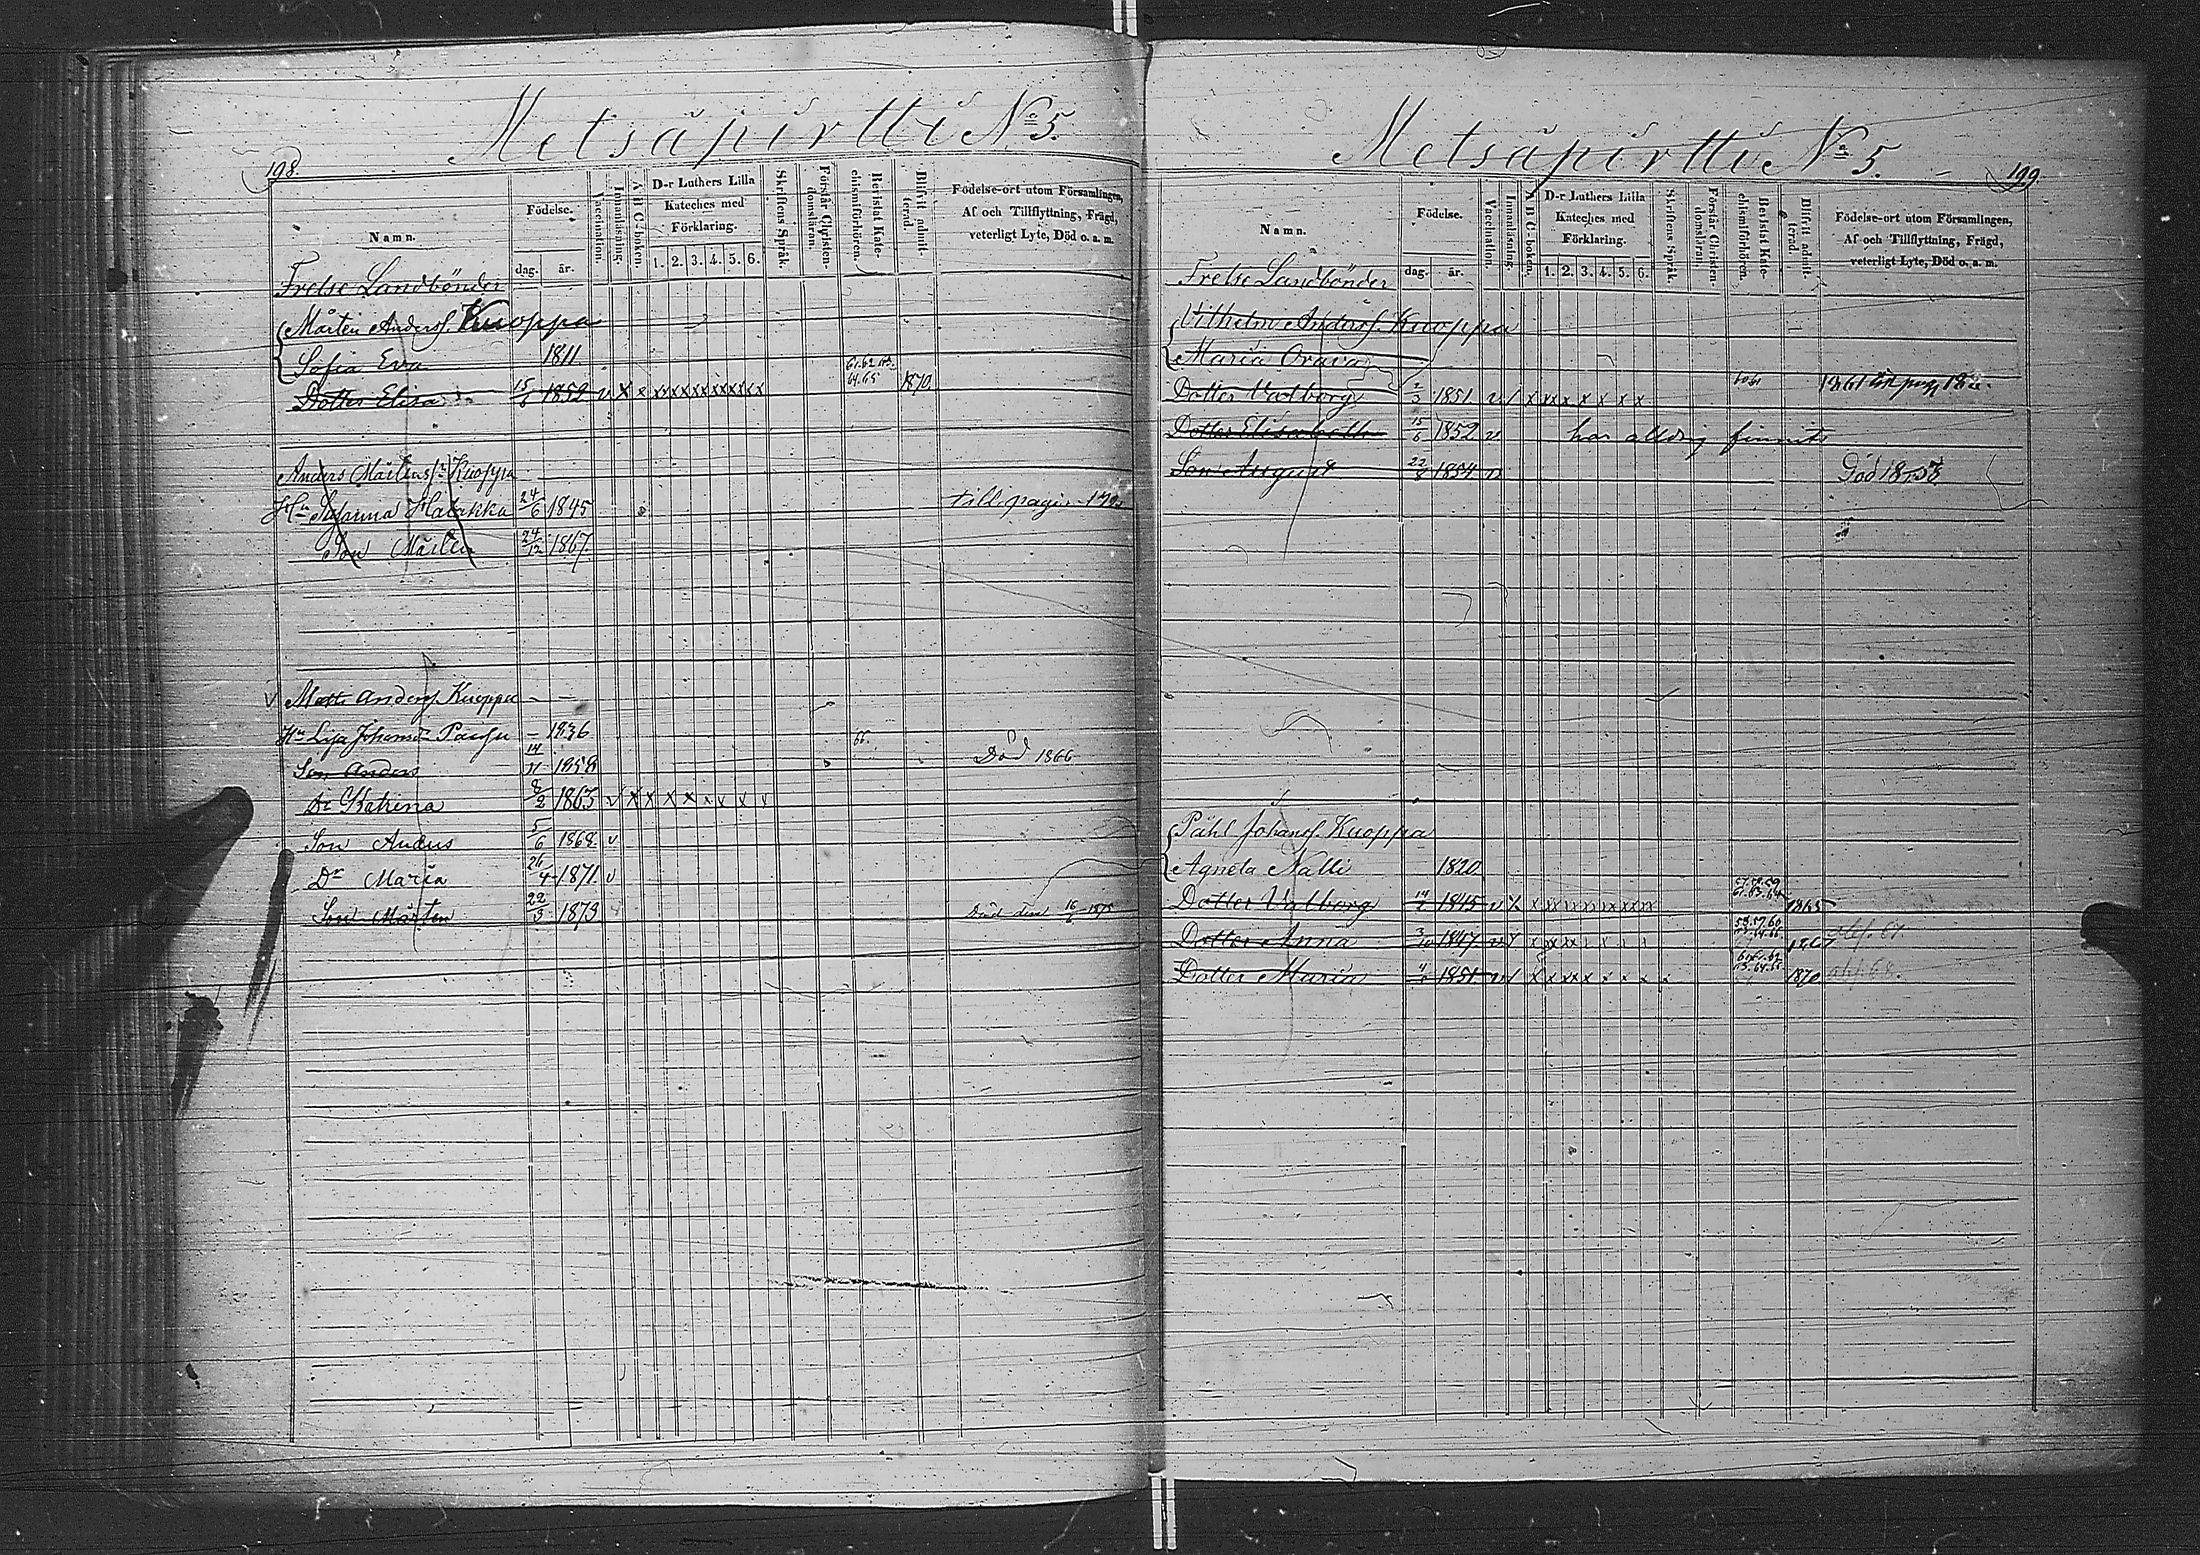 198.
Metsäpirtti No 5.
Namn.
Födelse.
dag. år.
Vaccination.
Innanläsning.
A B C-boken.
D-r Luthers Lilla Kateches med Förklaring.
1. 2. 3. 4. 5. 6.
Skriftens Språk.
Förstår Christendomsläran.
Bevistat Katechismiförhören.
Blifvit admitterad.
Födelse-ort utom Församlingen,
Af och Tillflyttning, Frägd,
veterligt Lyte, Död o. a. m.
Frelse Landbönder
Mårten Andersf. Kuoppa
Sofia Eva 1811
Dotter Elisa 15/6 1852 v x x x x x x x x x x x 61.62 64.65 1870.
Anders Mårtensf. Kuoppa
Hu Susanna Hatakka 24/6 1845 till pagin.
Son Mårten 24/12 1867.
v Matts Andersf. Kuoppa - -
Hu Lisa Johansdr - 1836 66.
Son Anders 14/11 1858 Död 1866
Dr Katrina 8/2 1863 v x x x x x v x x v
Son Anders 5/6 1868 v
Dr Maria 26/4 1871. v
Son Mårten 22/3 1873 Död den 16/6 1875
199.
Metsäpirtti No 5.
Namn.
Födelse.
dag. år.
Vaccination.
Innanläsning.
A B C-boken.
D-r Luthers Lilla Kateches med Förklaring.
1. 2. 3. 4. 5. 6.
Skriftens Språk.
Förstår Christendomsläran.
Bevistat Katechismiförhören.
Blifvit admitterad.
Födelse-ort utom Församlingen,
Af och Tillflyttning, Frägd,
veterligt Lyte, Död o. a. m.
Frelse Landbönder
Vilhelm Andersf. Kuoppa
Maria Orava
Dotter Valborg 2/3 1851 v / x x x x x x x x 60 61 1861 till pag.
Dotter Elisabeth 15/6 1852 v har aldrig funnits
Son August 1854. v Död 1858
Påhl Johansf. Kuoppa
Agneta Nalli 1820
Dotter Valborg 1845 v x x x x x x x x x x 57.58.59 61.63.64 1865
Dotter Anna 1847 v x x x x x x x x x 1867
Dotter Maria 1851. v / x x x x x x x x x 1870